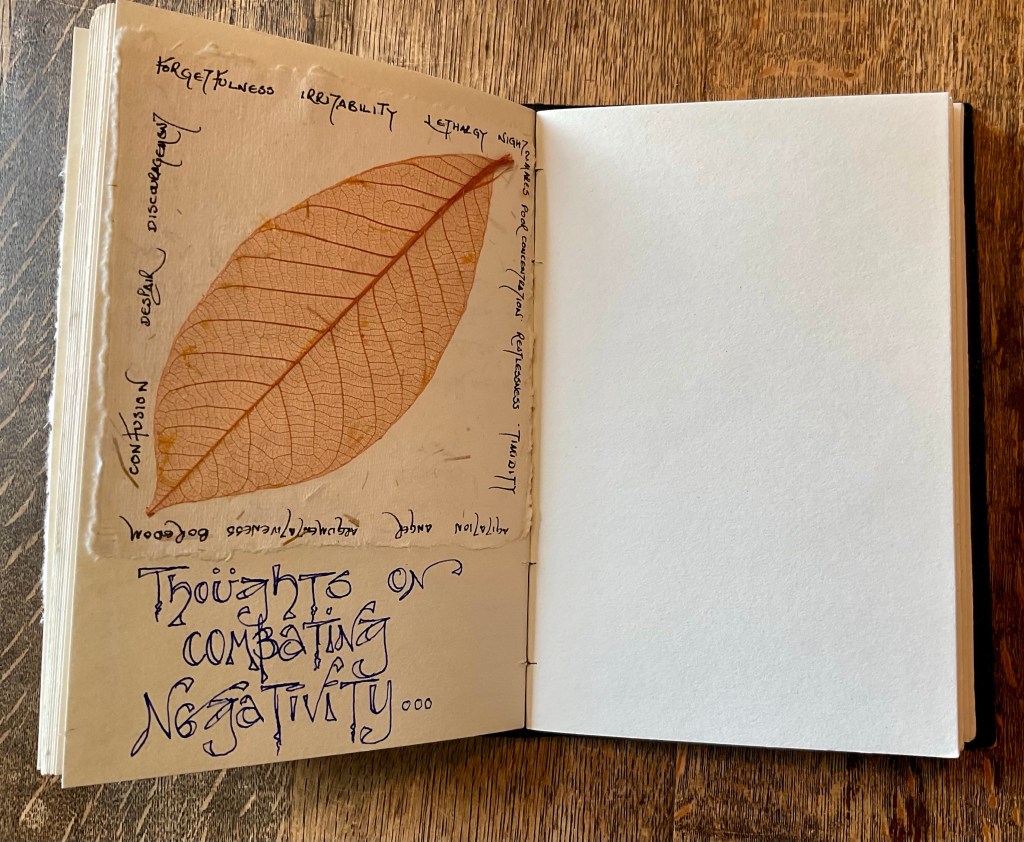 FORGETFULNESS IRRITABILITY LETHARGY NIGHTMARES POOR CONCENTRATION RESTLESSNESS · TIMIDITY
AGITATION ANGER ARGUMENTATIVENESS BOREDOM
CONFUSION DESPAIR DISCOURAGEMENT
Thoüghts on
combating
Negativity...